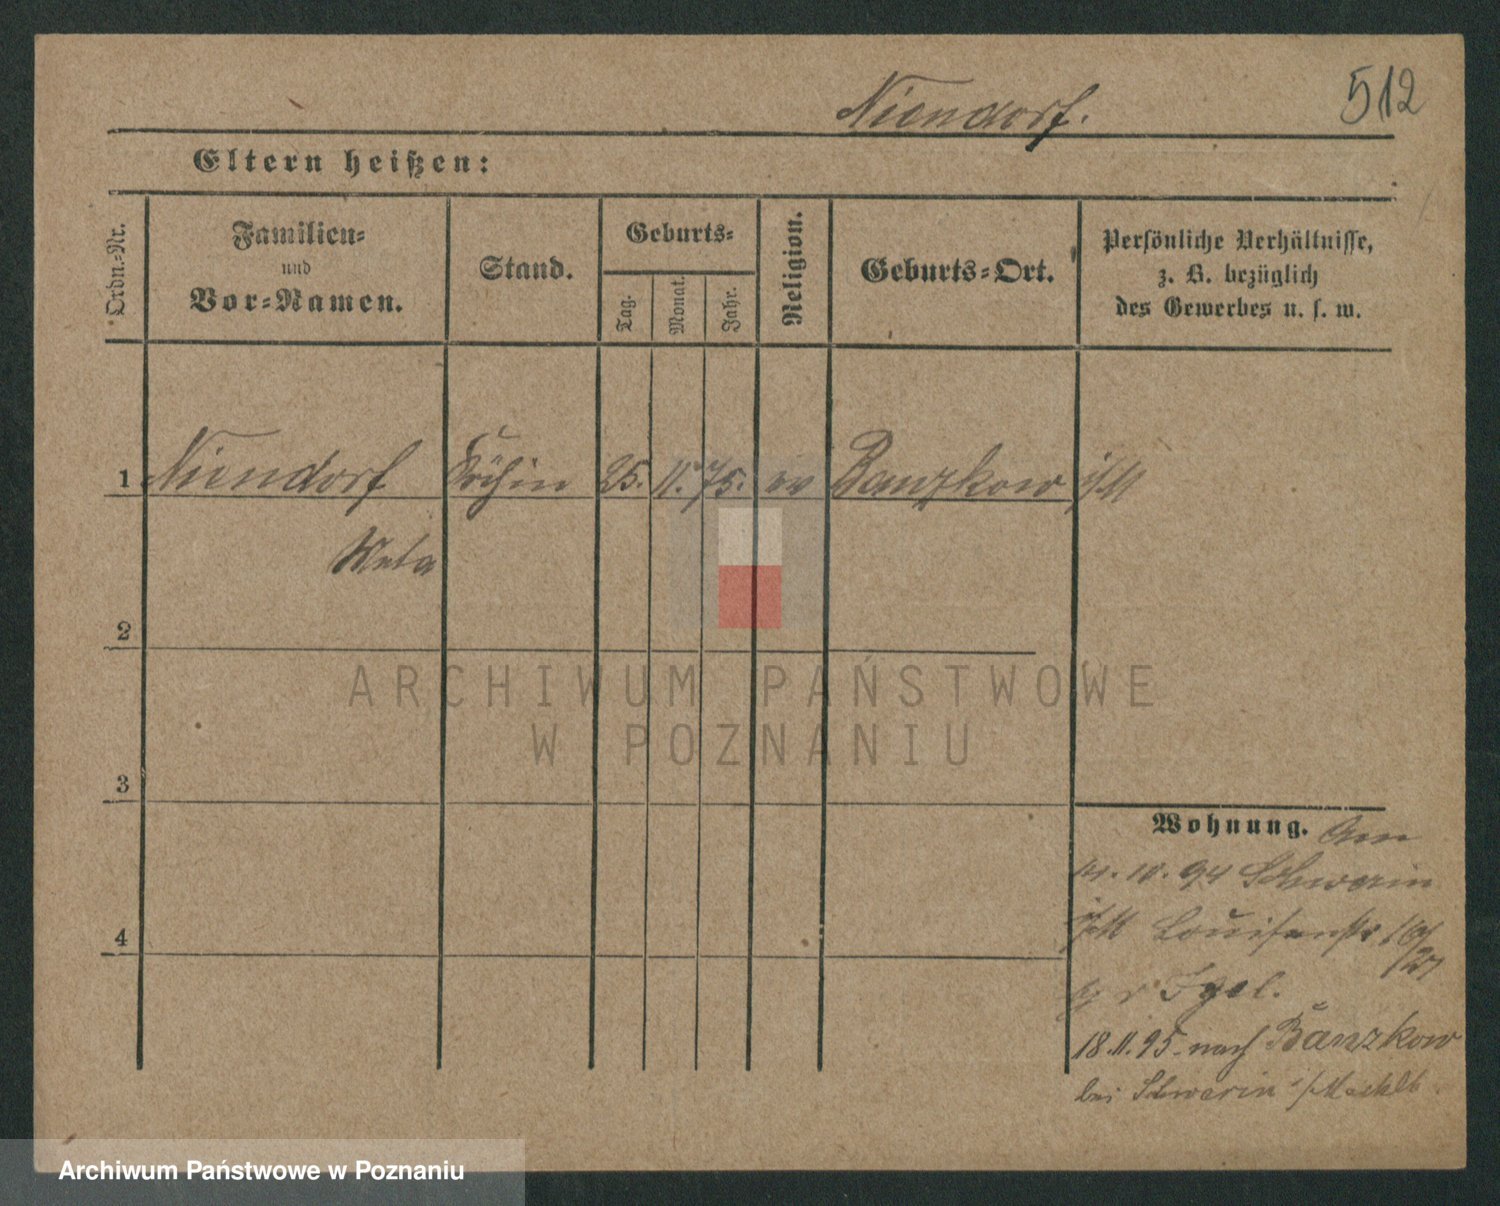 Niendorf.
512
Eltern heißen:
Ordn.-Nr.
Familien-
und
Vor-Namen.
Stand.
Geburts-
Tag.
Monat.
Jahr.
Religion.
Geburts-Ort.
Persönliche Verhältnisse,
z. B. bezüglich
des Gewerbes u. s. w.
1 Niendorf Köchin 25. 11. 75. ev Banzkow
Meta
2
3
4
Wohnung. Am
10. 94 Schwerin
Louisenstr 16/
Igel.
18.11.95. nach Banzkow
bei Schwerin i/Mecklb.
ARCHIWUM PAŃSTWOWE
W POZNANIU
Archiwum Państwowe w Poznaniu